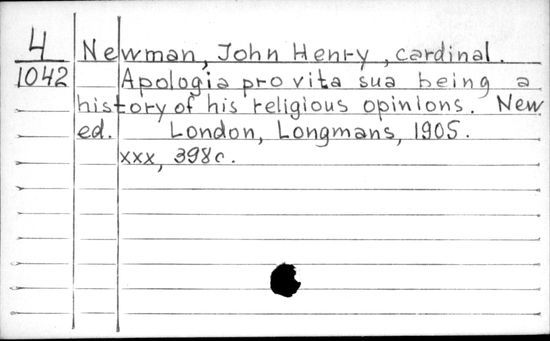 4 Newman, John Henry, cardinal.
1042 Apologia pro vita sua being a
history of his religious opinions. New
ed. London, Longmans, 1905.
xxx, 398c.